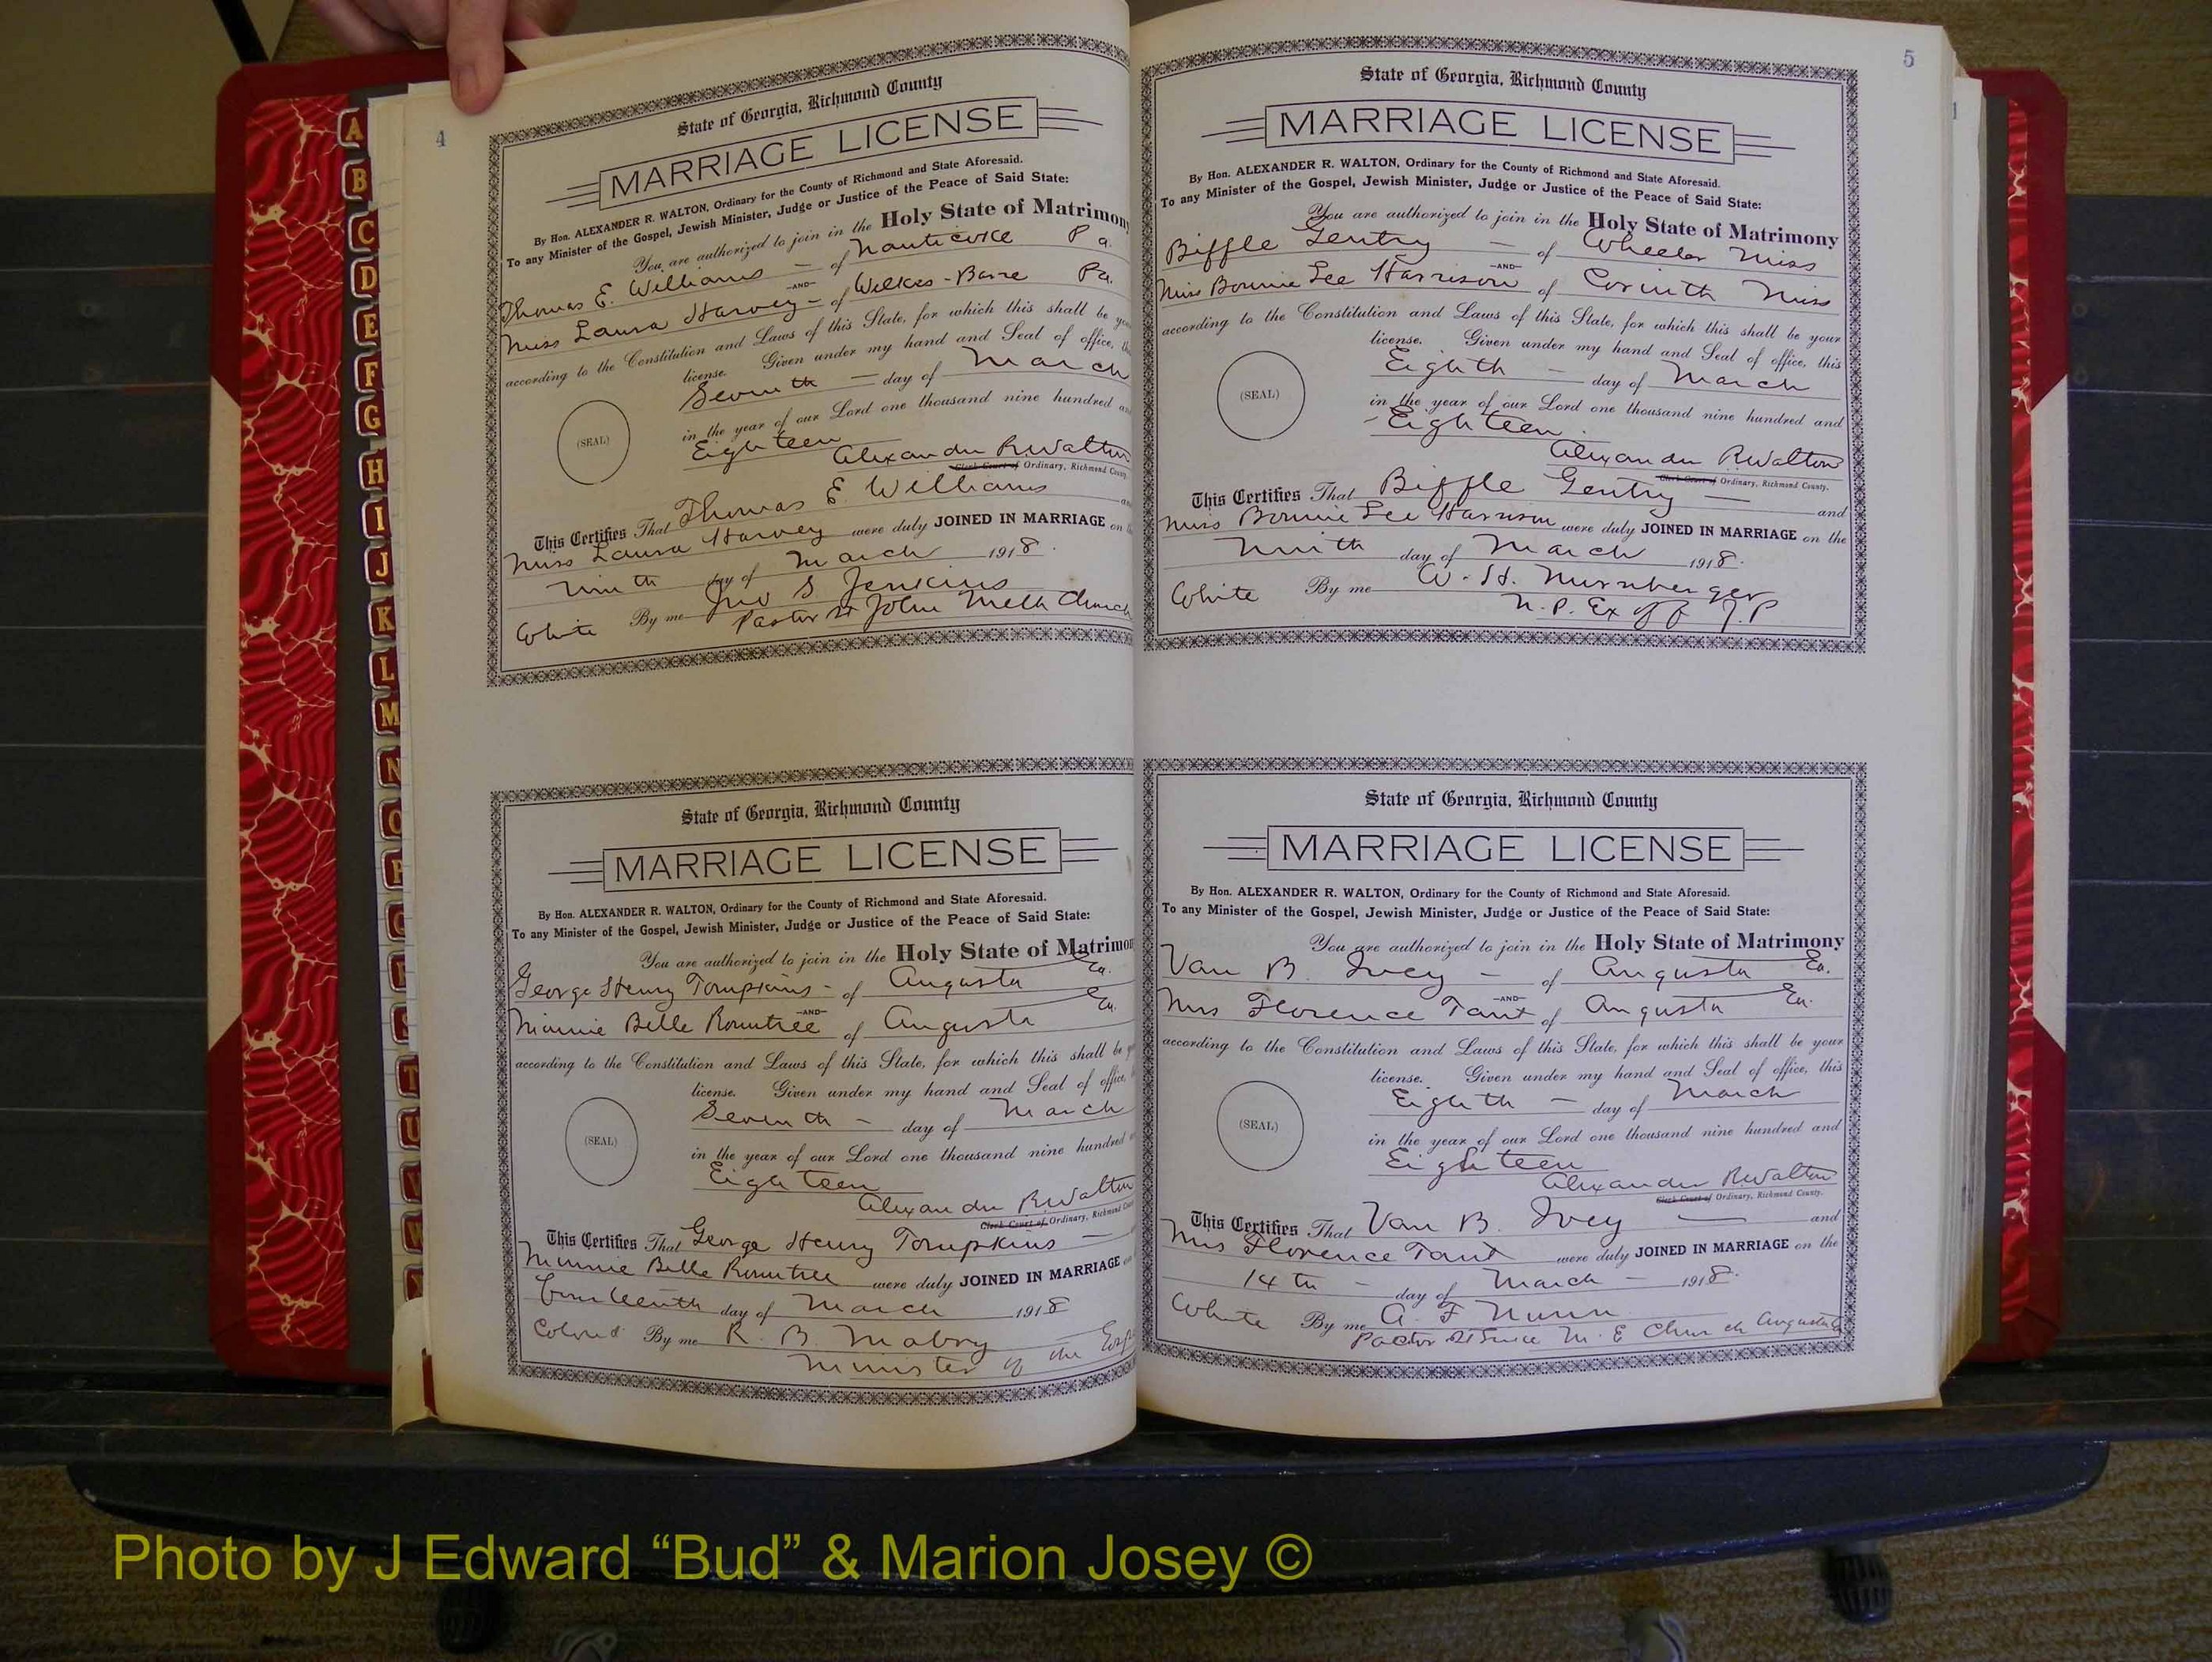 4
State of Georgia, Richmond County
MARRIAGE LICENSE
By Hon. ALEXANDER R. WALTON, Ordinary for the County of Richmond and State Aforesaid.
To any Minister of the Gospel, Jewish Minister, Judge or Justice of the Peace of Said State:
You are authorized to join in the Holy State of Matrimony
Thomas E. Williams — of Nanticoke Pa.
—AND—
Miss Laura Harvey — of Wilkes-Barre Pa.
according to the Constitution and Laws of this State, for which this shall be
license. Given under my hand and Seal of office,
Seventh — day of March
in the year of our Lord one thousand nine hundred
(SEAL)
Eighteen
Alexander R Walton
Clerk Court of Ordinary, Richmond County
This Certifies That Thomas E. Williams
Miss Laura Harvey were duly JOINED IN MARRIAGE on
Ninth day of March 1918.
White By me Jno S Jenkins
Pastor St John Meth Church
State of Georgia, Richmond County
MARRIAGE LICENSE
By Hon. ALEXANDER R. WALTON, Ordinary for the County of Richmond and State Aforesaid.
To any Minister of the Gospel, Jewish Minister, Judge or Justice of the Peace of Said State:
You are authorized to join in the Holy State of Matrimon
George Henry Tompkins — of Augusta Ga.
—AND—
Minnie Belle Rountree of Augusta Ga.
according to the Constitution and Laws of this State, for which this shall be
license. Given under my hand and Seal of office,
Seventh — day of March
in the year of our Lord one thousand nine hundred
(SEAL)
Eighteen
Alexander R Walton
Clerk Court of Ordinary, Richmond
This Certifies That George Henry Tompkins —
Minnie Belle Rountree were duly JOINED IN MARRIAGE
Fourteenth day of March 1918
Colored By me R. B. Mabry
Minister of the
5
State of Georgia, Richmond County
MARRIAGE LICENSE
By Hon. ALEXANDER R. WALTON, Ordinary for the County of Richmond and State Aforesaid.
To any Minister of the Gospel, Jewish Minister, Judge or Justice of the Peace of Said State:
You are authorized to join in the Holy State of Matrimony
Biffle Gentry — of Wheeler Miss
—AND—
Miss Bonnie Lee Harrison of Corinth Miss
according to the Constitution and Laws of this State, for which this shall be your
license. Given under my hand and Seal of office, this
Eighth — day of March
in the year of our Lord one thousand nine hundred and
(SEAL)
Eighteen.
Alexander R Walton
Clerk Court of Ordinary, Richmond County.
This Certifies That Biffle Gentry — and
Miss Bonnie Lee Harrison were duly JOINED IN MARRIAGE on the
Ninth day of March 1918.
White By me W. H. Nurnberger
N. P. Ex off J. P
State of Georgia, Richmond County
MARRIAGE LICENSE
By Hon. ALEXANDER R. WALTON, Ordinary for the County of Richmond and State Aforesaid.
To any Minister of the Gospel, Jewish Minister, Judge or Justice of the Peace of Said State:
You are authorized to join in the Holy State of Matrimony
Van B. Ivey — of Augusta Ga.
—AND—
Mrs Florence Tant of Augusta Ga.
according to the Constitution and Laws of this State, for which this shall be your
license. Given under my hand and Seal of office, this
Eighth — day of March
in the year of our Lord one thousand nine hundred and
(SEAL)
Eighteen
Alexander R Walton
Clerk Court of Ordinary, Richmond County.
This Certifies That Van B. Ivey — and
Mrs Florence Tant were duly JOINED IN MARRIAGE on the
14th — day of March — 1918.
White By me A. F Nunn
Pastor St M. E Church Augusta
A
B
C
D
E
F
G
H
I
J
K
L
M
N
O
P
Q
R
S
T
U
V
W
Photo by J Edward “Bud” & Marion Josey ©